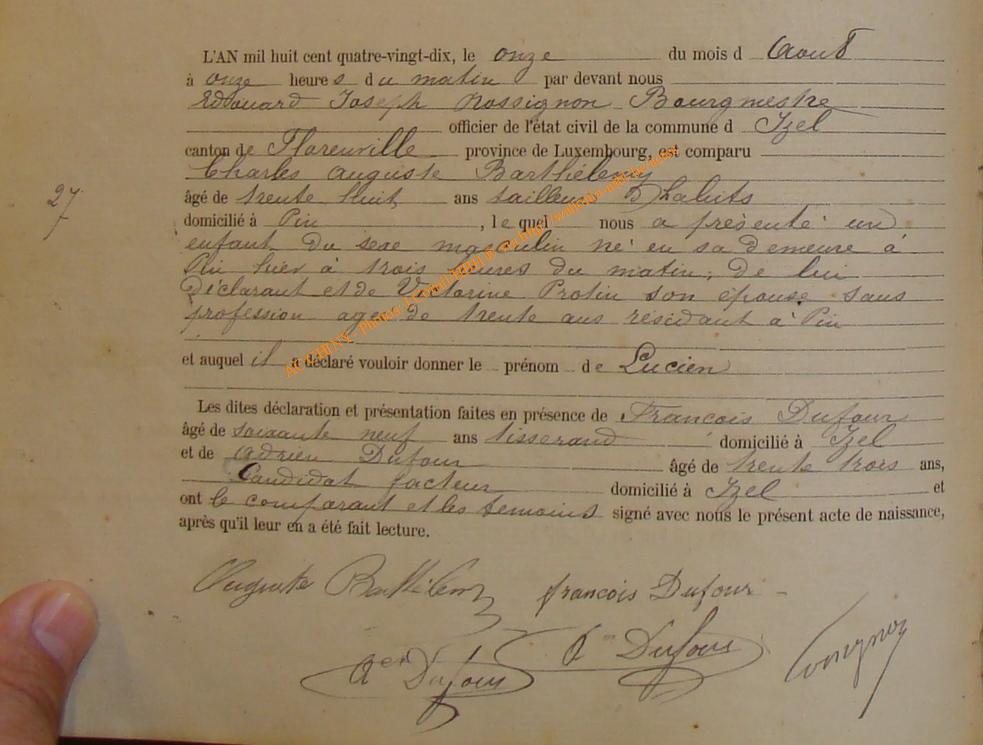 L'AN mil huit cent quatre-vingt-dix, le onze du mois d Aout
à onze heure s du matin par devant nous
Edouard Joseph Rossignon Bourgmestre
officier de l'état civil de la commune d Izel
canton de Florenville province de Luxembourg, est comparu
Charles Auguste Barthélemy
27
âgé de trente huit ans tailleur d'habits
domicilié à Pin , le quel nous a présenté un
enfant du sexe masculin né en sa demeure à
Pin hier à trois heures du matin, de lui
déclarant et de Victorine Protin son épouse sans
profession agée de trente ans résidant à Pin
et auquel il a déclaré vouloir donner le prénom de Lucien
Les dites déclaration et présentation faites en présence de François Dufour
âgé de soixante neuf ans tisserand domicilié à Izel
et de Adrien Dufour âgé de trente trois ans,
Candidat facteur domicilié à Izel et
ont le comparant et les temoins signé avec nous le présent acte de naissance,
après qu'il leur en a été fait lecture.
Auguste Barthélemy françois Dufour
A Dufour
Dufour